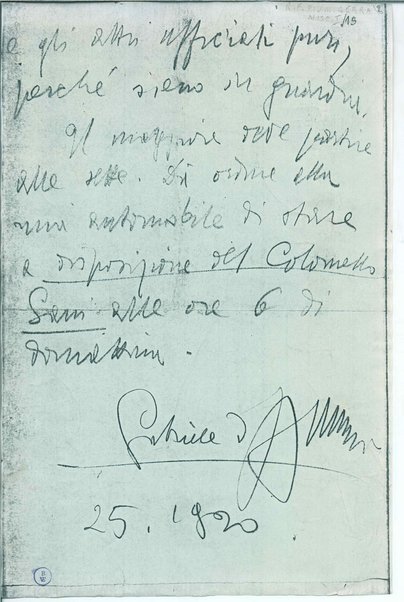 e gli altri ufficiali pure,
perché siano in guardia.
Il maggiore deve partire
alle sette. Dà ordine alla
mia automobile di stare
a disposizione del Colonnello
Sani alle ore 6 di
domattina.
Gabriele d'Annunzio
25. 1920.